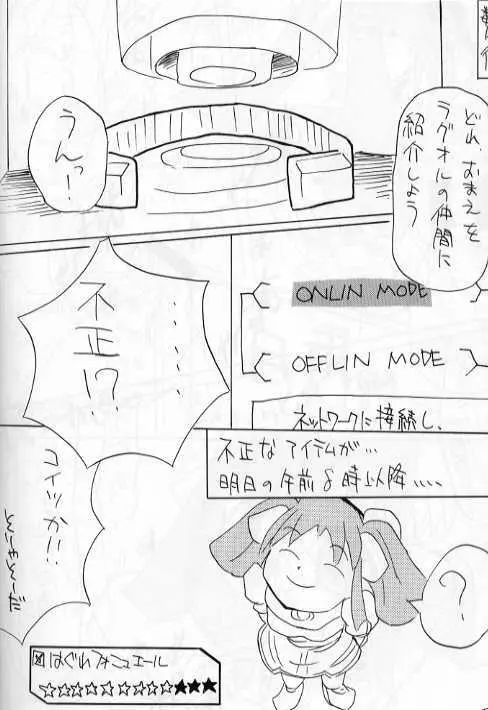 どれ、おまえを
ラグオルの仲間に
紹介しよう
うんっ!
ONLIN MODE
OFFLIN MODE
ネットワークに接続し、
不正なアイテムが…
明日の午前8時以降……
……
不正!?
コイツか!!
?
はぐれフォニュエール
☆☆☆☆☆☆☆☆☆★★★